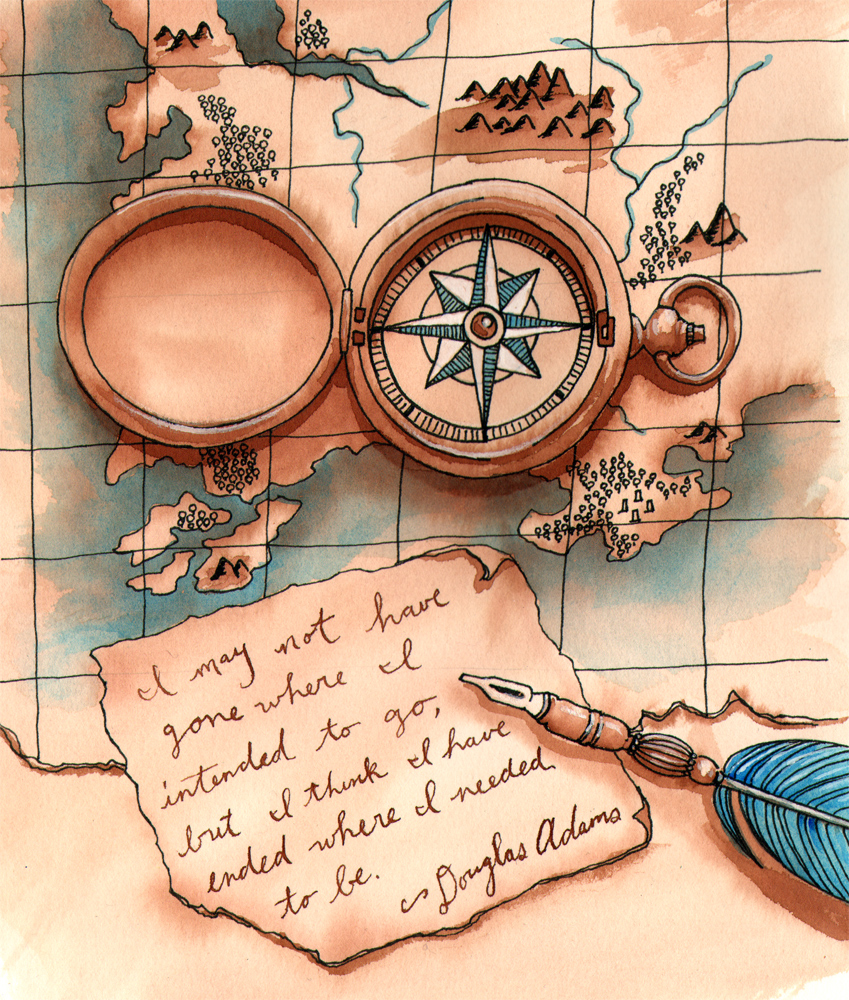 I may not have
gone where I
intended to go,
but I think I have
ended where I needed
to be.
~Douglas Adams